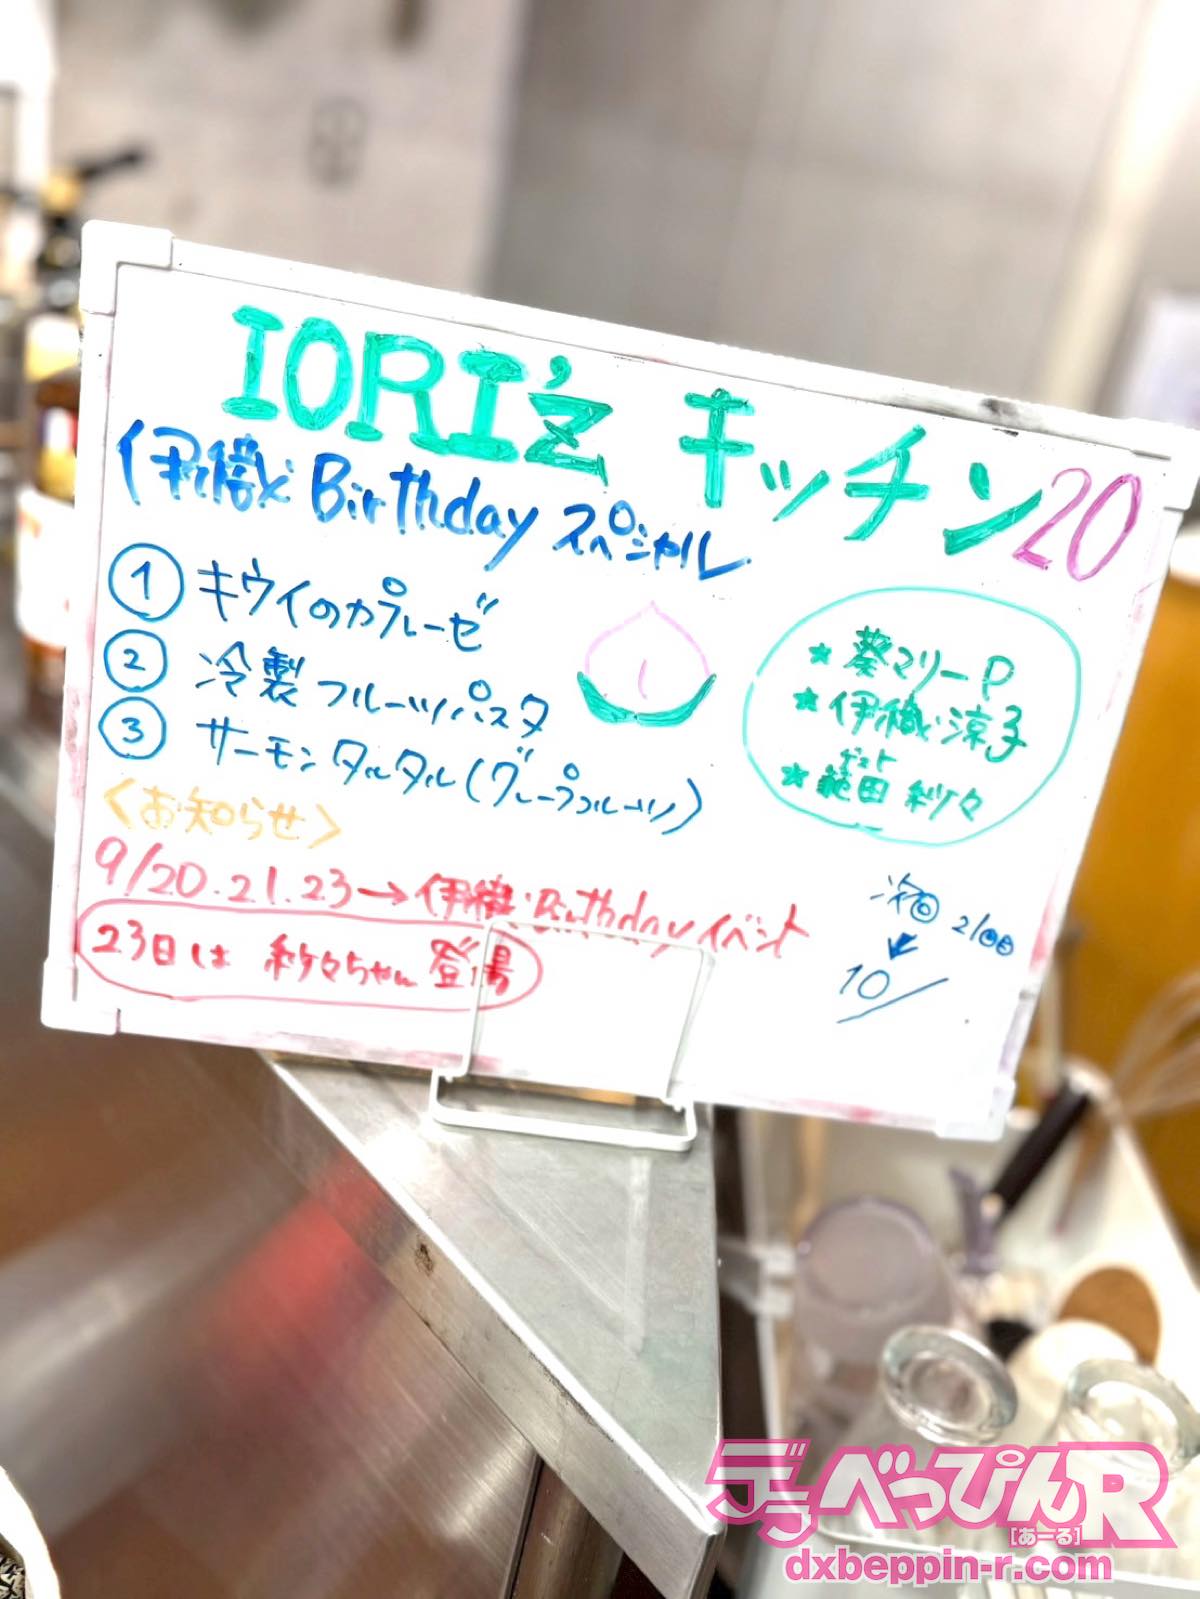 IORI'z キッチン20
伊織 Birthday スペシャル
① キウイのカプレーゼ
② 冷製フルーツパスタ
③ サーモンタルタル(グレープフルーツ)
★ 葵マリーP
★ 伊織涼子
ゲスト
★ 範田紗々
<お知らせ>
9/20.21.23→伊織Birthdayイベント
23日は 紗々ちゃん 登場
次回
10/
デラべっぴんR
[あーる]
dxbeppin-r.com